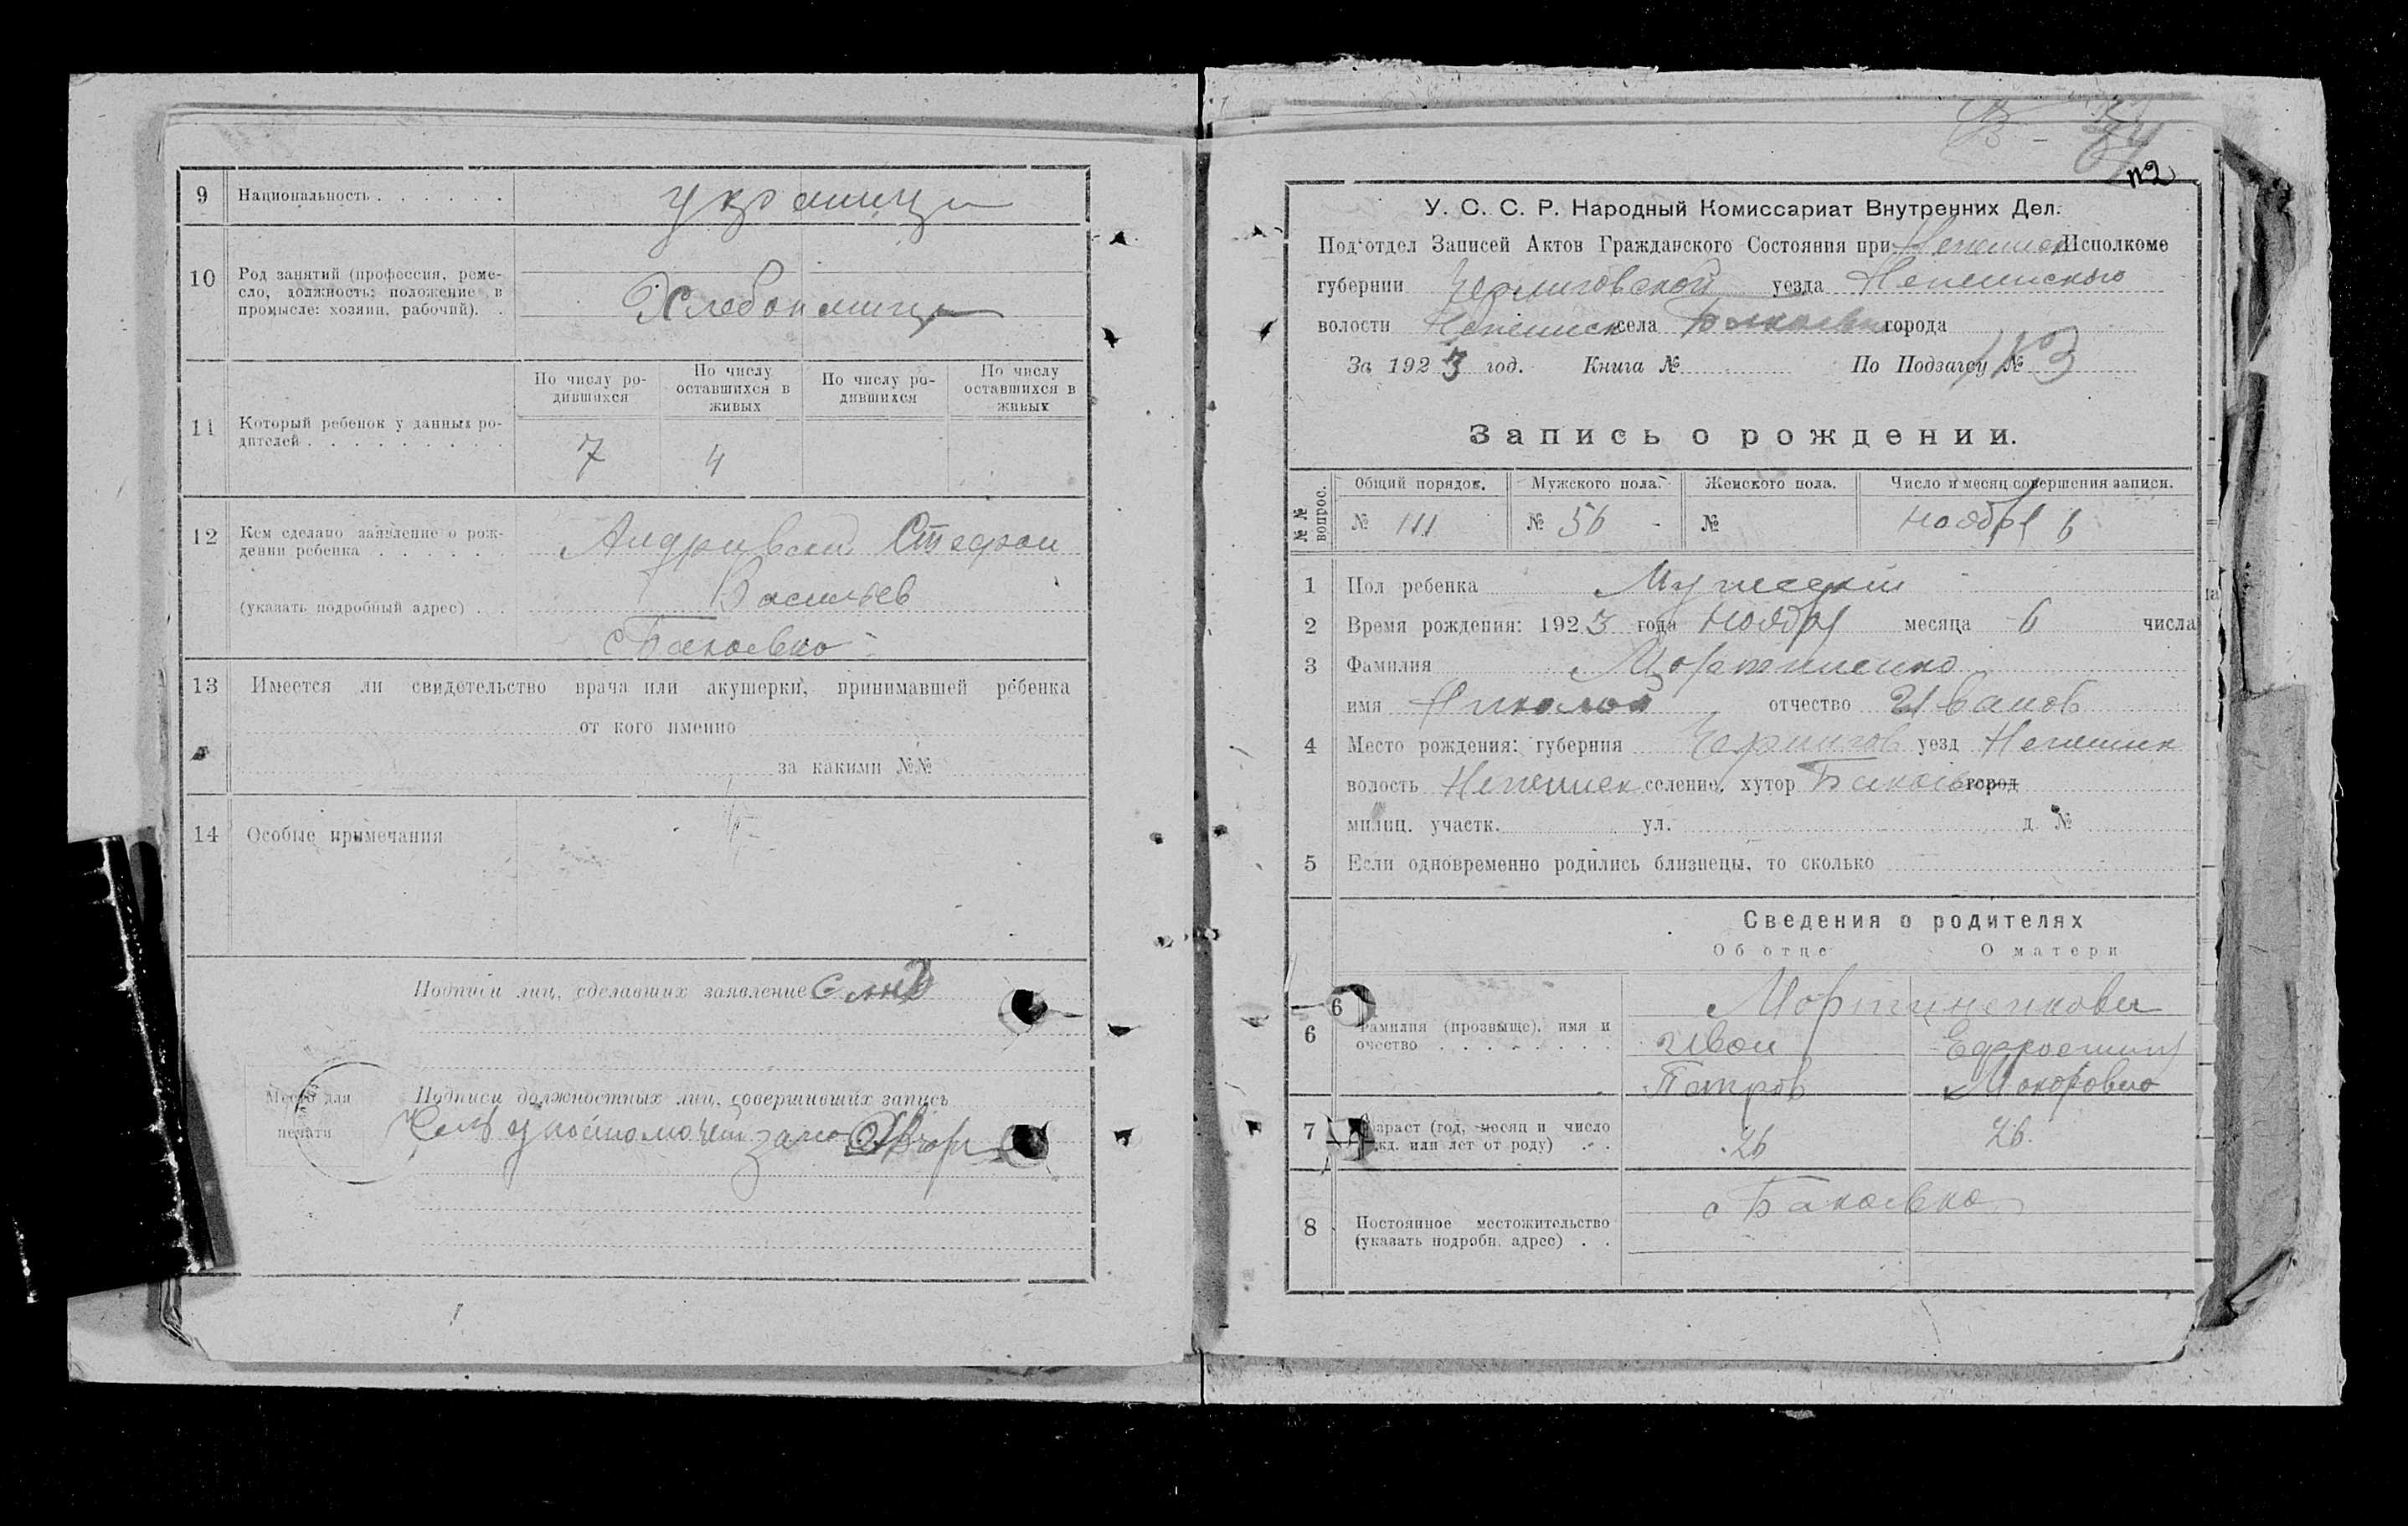 9 Национальность . . . . . . украинцы
10 Род занятий (профессия, реме-
сло, должность; положение в
промысле: хозяин, рабочий). .
Хлебопашцы
11 Который ребенок у данных ро-
дителей . . . . . . . . .
По числу ро-
дившихся
По числу
оставшихся в
живых
По числу ро-
дившихся
По числу
оставшихся в
живых
7 4
12 Кем сделано заявление о рож-
дении ребенка . . . . . .
Стефан
(указать подробный адрес) . . Васильев
с Бакаевка
13 Имеется ли свидетельство врача или акушерки, принимавшей ребенка
от кого именно
за какими №№
14 Особые примечания
Подписи лиц, сделавших заявление
Место для
печати
Подписи должностных лиц, совершивших запись
112
У. С. С. Р. Народный Комиссариат Внутренних Дел.
Под'отдел Записей Актов Гражданского Состояния при Исполкоме
губернии Черниговской уезда
волости села Бакаевка города
За 1923 год. Книга № По Подзагсу № 113
Запись о рождении.
№ № вопрос.
Общий порядок. Мужского пола. Женского пола. Число и месяц совершения записи.
№ 111 № 56 № Ноября 6
1 Пол ребенка Мужеский
2 Время рождения: 1923 года Ноября месяца 6 числа
3 Фамилия Мартиненко
имя Николай отчество Иванов
4 Место рождения: губерния Чернигов уезд
волость селение, хутор Бакаевка город
милиц. участк. ул. д. №
5 Если одновременно родились близнецы, то сколько
Сведения о родителях
Об отце О матери
6
6 Фамилия (прозвище), имя и
очество . . . . . . . .
Мартиненковы
Иван Ефросиния
Петров Макаровна
7 Возраст (год, месяц и число
рожд. или лет от роду) . .
26 26
8 Постоянное местожительство
(указать подробн. адрес) . .
с Бакаевка